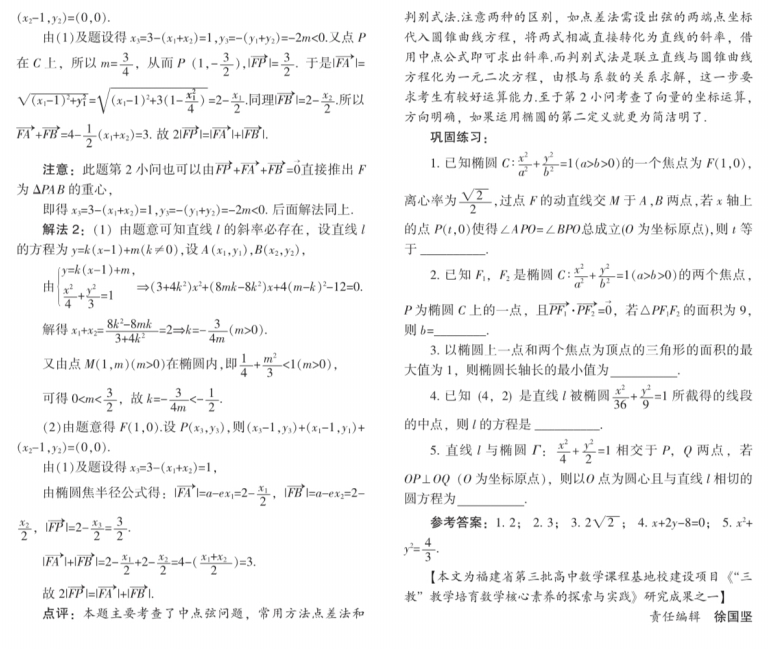 (x₂-1,y₂)=(0,0).
由(1)及题设得 x₃=3-(x₁+x₂)=1,y₃=-(y₁+y₂)=-2m<0.又点 P
在 C 上，所以 m=3/4，从而 P (1,-3/2),|FP→|=3/2. 于是|FA→|=
√((x₁-1)²+y₁²)=√((x₁-1)²+3(1-x₁²/4))=2-x₁/2.同理|FB→|=2-x₂/2.所以
FA→+FB→=4-1/2(x₁+x₂)=3. 故 2|FP→|=|FA→|+|FB→|.
注意：此题第 2 小问也可以由FP→+FA→+FB→=0→直接推出 F
为 ΔPAB 的重心，
即得 x₃=3-(x₁+x₂)=1,y₃=-(y₁+y₂)=-2m<0. 后面解法同上.
解法 2：(1) 由题意可知直线 l 的斜率必存在，设直线 l
的方程为 y=k(x-1)+m(k≠0),设 A(x₁,y₁),B(x₂,y₂),
由{y=k(x-1)+m, x²/4+y²/3=1 ⇒(3+4k²)x²+(8mk-8k²)x+4(m-k)²-12=0.
解得 x₁+x₂=(8k²-8mk)/(3+4k²)=2⇒k=-3/4m(m>0).
又由点 M(1,m)(m>0)在椭圆内,即1/4+m²/3<1(m>0),
可得 0<m<3/2，故 k=-3/4m<-1/2.
(2)由题意得 F(1,0).设 P(x₃,y₃),则(x₃-1,y₃)+(x₁-1,y₁)+
(x₂-1,y₂)=(0,0).
由(1)及题设得 x₃=3-(x₁+x₂)=1,
由椭圆焦半径公式得：|FA→|=a-ex₁=2-x₁/2，|FB→|=a-ex₂=2-
x₂/2，|FP→|=2-x₃/2=3/2.
|FA→|+|FB→|=2-x₁/2+2-x₂/2=4-((x₁+x₂)/2)=3.
故 2|FP→|=|FA→|+|FB→|.
点评：本题主要考查了中点弦问题，常用方法点差法和
判别式法.注意两种的区别，如点差法需设出弦的两端点坐标
代入圆锥曲线方程，将两式相减直接转化为直线的斜率，借
用中点公式即可求出斜率.而判别式法是联立直线与圆锥曲线
方程化为一元二次方程，由根与系数的关系求解，这一步要
求考生有较好运算能力.至于第 2 小问考查了向量的坐标运算，
方向明确，如果运用椭圆的第二定义就更为简洁明了.
巩固练习：
1. 已知椭圆 C:x²/a²+y²/b²=1(a>b>0)的一个焦点为 F(1,0),
离心率为√2/2,过点 F 的动直线交 M 于 A,B 两点,若 x 轴上
的点 P(t,0)使得∠APO=∠BPO总成立(O 为坐标原点),则 t 等
于________.
2. 已知 F₁，F₂ 是椭圆 C:x²/a²+y²/b²=1(a>b>0)的两个焦点，
P 为椭圆 C 上的一点，且PF₁→·PF₂→=0→，若△PF₁F₂ 的面积为 9,
则 b=______.
3. 以椭圆上一点和两个焦点为顶点的三角形的面积的最
大值为 1，则椭圆长轴长的最小值为________.
4. 已知 (4，2) 是直线 l 被椭圆x²/36+y²/9=1 所截得的线段
的中点，则 l 的方程是 ________.
5. 直线 l 与椭圆 Γ：x²/4+y²/2=1 相交于 P，Q 两点，若
OP⊥OQ（O 为坐标原点），则以O 点为圆心且与直线 l 相切的
圆方程为________.
参考答案：1. 2； 2. 3； 3. 2√2； 4. x+2y-8=0； 5. x²+
y²=4/3.
【本文为福建省第三批高中数学课程基地校建设项目《“三
教”教学培育数学核心素养的探索与实践》研究成果之一】
责任编辑 徐国坚